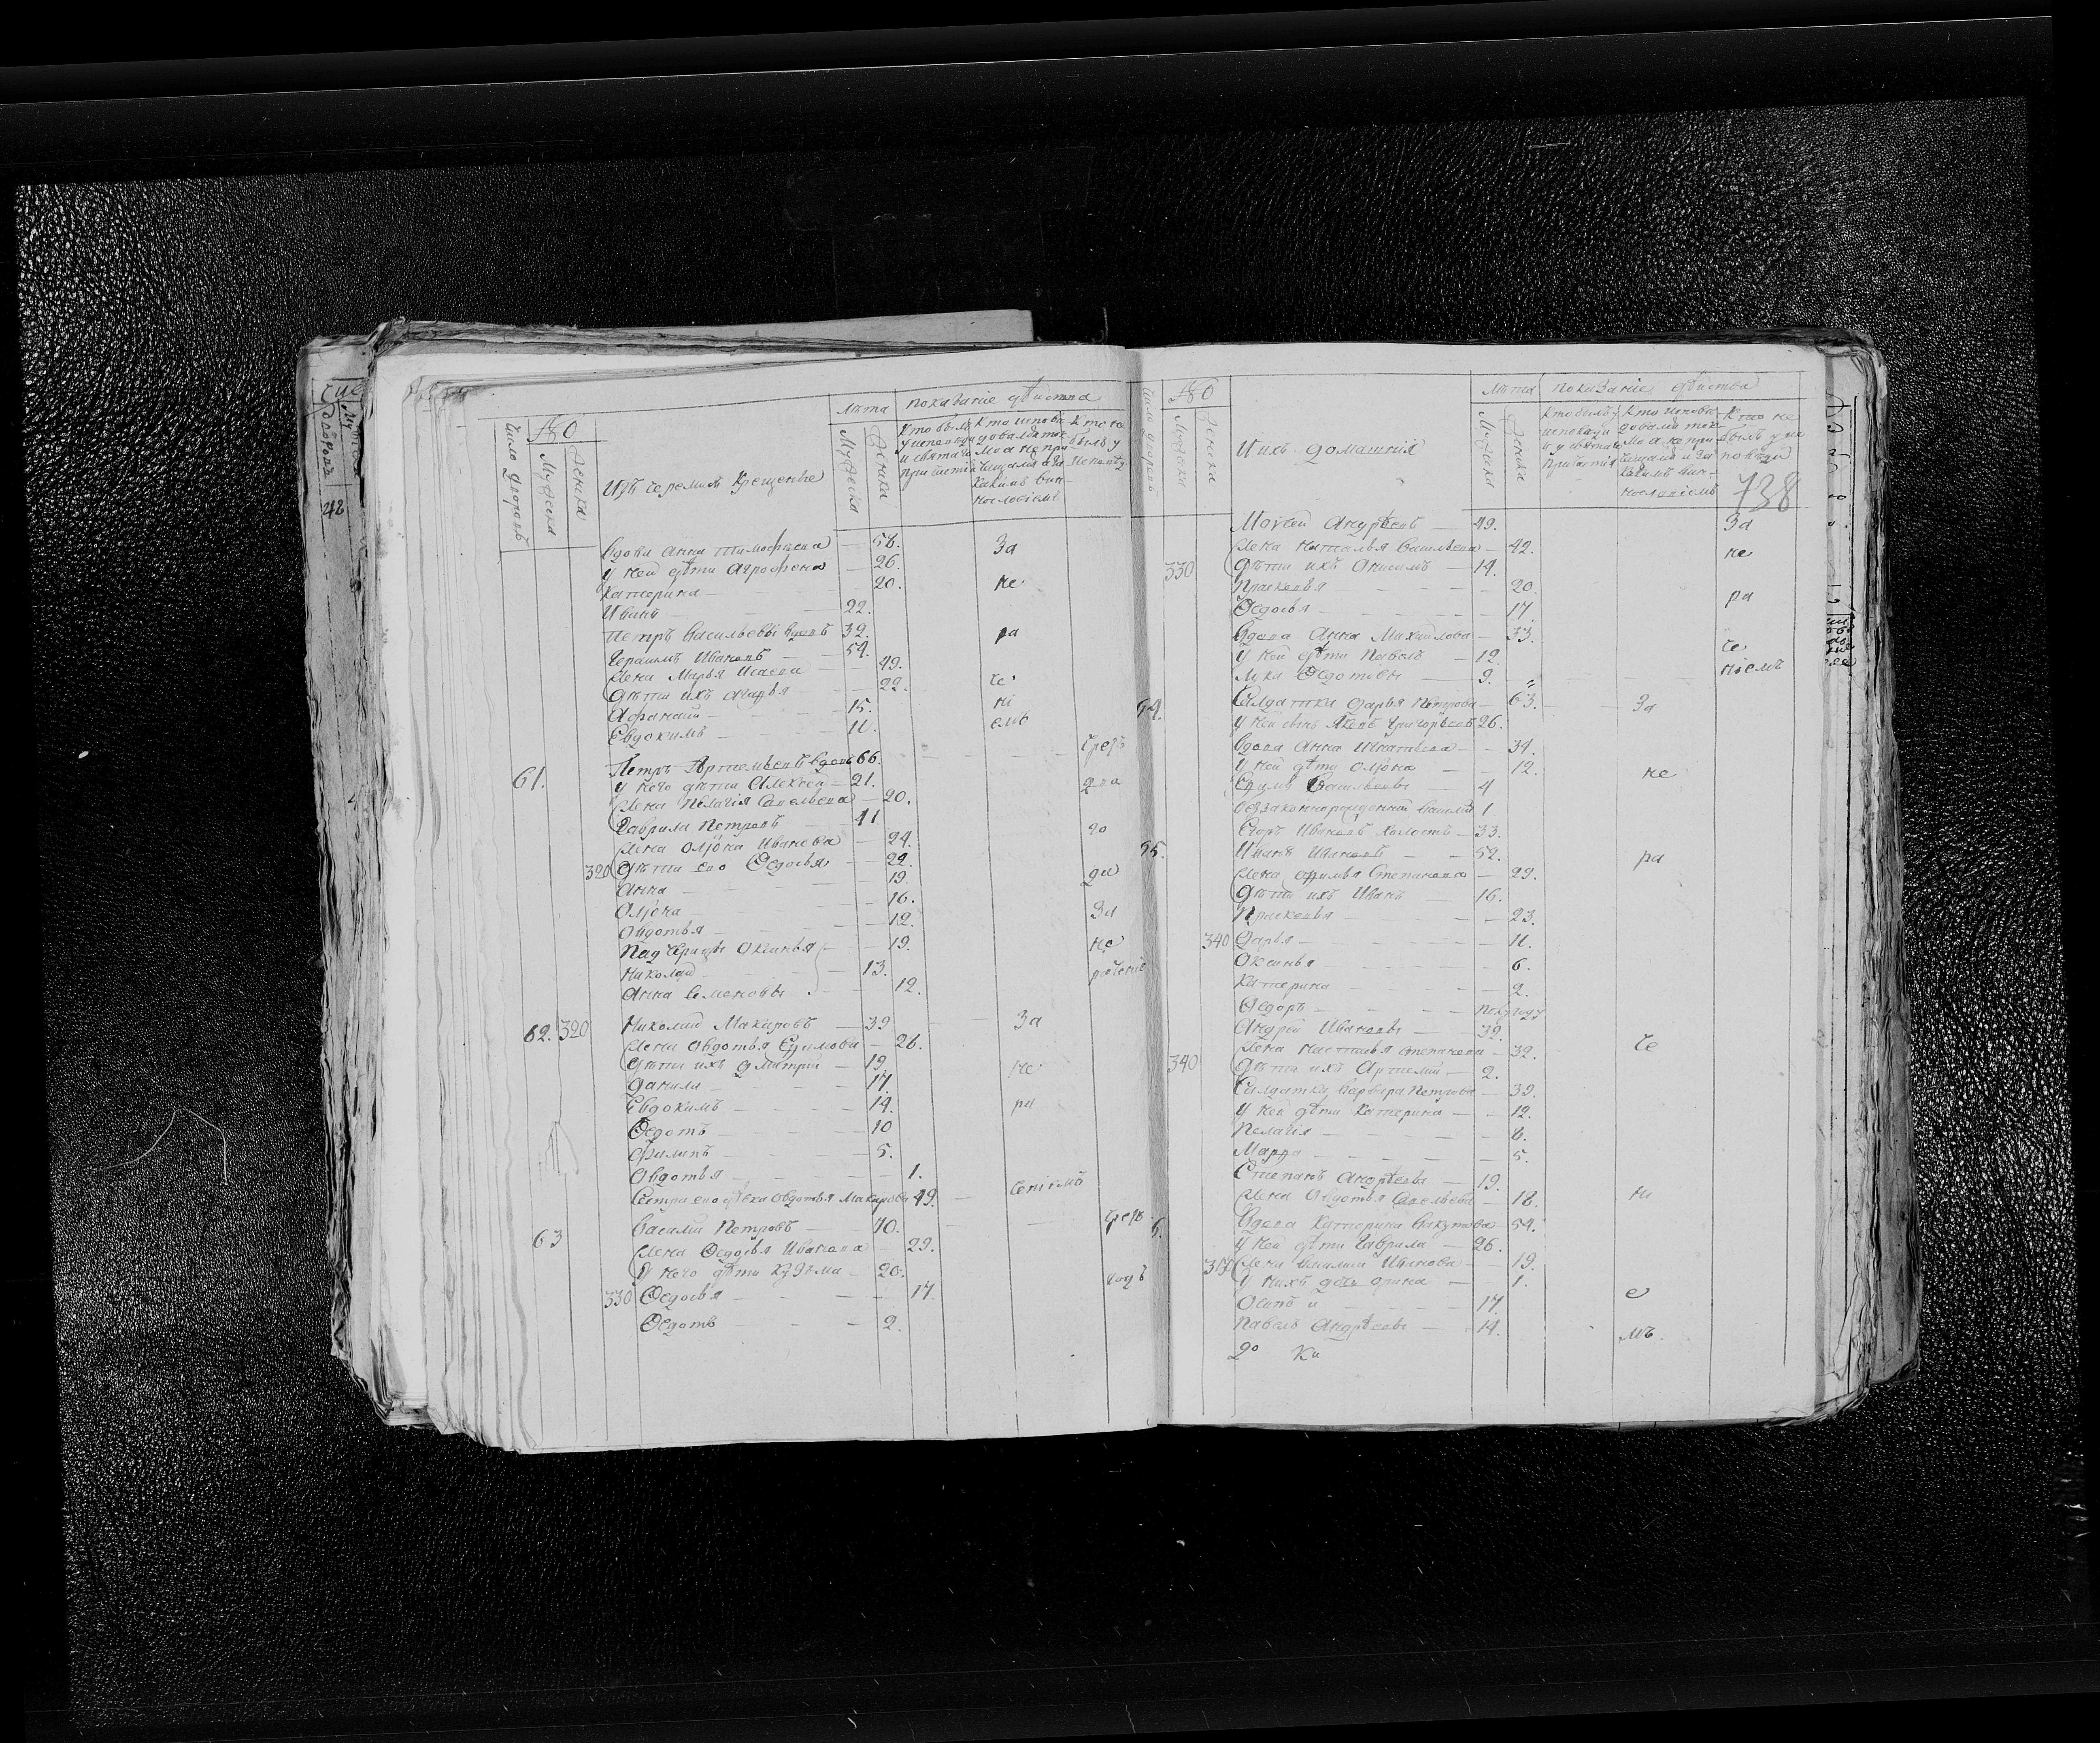 №
Число дворовъ
Мужеска
Женска
Изъ черемисъ Крещеные
Лѣта
Мужеска
Женска
показаніе дѣйства
Кто былъ у исповѣди и святаго Причастія
Кто исповѣдовался токмо а не причащался а за какимъ винословіемъ
Кто не былъ у исповѣди
Вдова Анна Тимофѣева — 58. За
у ней дѣти Агрофена — 26.
Катерина — 20. не
Иванъ — 22.
Петръ Васильевъ вдовъ 32. ра
Герасимъ Ивановъ — 54.
Жена Марья Исаева — 49.
Дѣти ихъ — 22. че
Афанасій — 15. ні
Евдокимъ — 11. емъ
61. Петръ Артемьевъ вдовъ 66. чрезъ
у него дѣти Алексѣй — 21. два
Жена Пелагія Савельева — 20.
Гаврила Петровъ — 41 го
Жена Олёна Иванова — 24.
320 Дѣти его Ѳедосья — 22. да
Анна — 19.
Олёна — 16.
Овдотья — 12. За
Падчерицы Оксинья — 19. не
Николай — 13. раченіе
Анна Семеновы — 12.
62. 320 Николай Макаровъ — 39 За
Жена Овдотья Ефимова — 26.
Дѣти ихъ Дмитрій — 19 не
Данила — 17.
Евдокимъ — 14. ра
Ѳедотъ — 10
Филипъ — 5.
Овдотья — 1.
Сестра его дѣвка Овдотья Макарова 49. ченіемъ
63 Василій Петровъ — 40. чрезъ
Жена Ѳедосья Иванова — 29.
У него дѣти Кузьма — 20.
330 Ѳедосья — 17. годъ
Ѳедотъ — 2.
Число дворовъ
№
Мужеска
Женска
И ихъ домашнія
Лѣта
Мужеска
Женска
показаніе дѣйства
Кто былъ у исповѣди и у святаго Причастія
Кто исповѣдовался токмо а не причащался и за какимъ винословіемъ
Кто не былъ у исповѣди
738
Моѵсей Андрѣевъ — 49. За
Жена Наталья Васильева — 42. не
330 Дѣти ихъ Анисимъ — 14.
Прасковья — 20. ра
Ѳедосья — 17.
Вдова Анна Михайлова — 33.
У ней дѣти Павелъ — 12. че
Лука Ѳедотовы — 9. ніемъ
Салдатка Дарья Петрова — 63. За
У ней сынъ Яковъ Григорьевъ 26.
Вдова Анна Игнатьева — 34.
У ней дѣти Олёна — 12. не
Ефимъ Васильевы — 4
Незаконнорожденный Василій 1
Егоръ Ивановъ холостъ — 33.
Иванъ Ивановъ — 52. ра
Жена Степанова — 29.
Дѣти ихъ Иванъ — 16.
Прасковья — 23.
340 Дарья — 11.
Оксинья — 6.
Катерина — 2.
Ѳедоръ — полугоду
Андрей Ивановъ — 32.
Жена Настасья Степанова — 32. че
340 Дѣти ихъ Артемій — 2.
Салдатка Варвара Петрова — 39.
У ней дѣти Катерина — 12.
Пелагія — 8.
Марфа — 5.
Степанъ Андрѣевъ — 19.
Жена Овдотья Савельева — 18. ні
Вдова Катерина — 54.
у ней дѣти Гаврила — 26.
Жена Иванова — 19.
У нихъ дочь Орина — 1. е
Осипъ и — 17.
Павелъ Андрѣевы — 14. мъ.